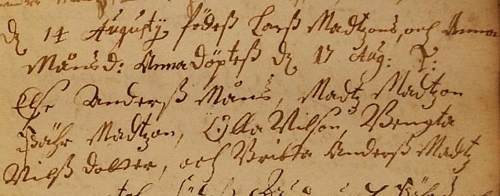 d 14 Augustij födeß Larß Madtzons, och Anna
Månsd: Anna döpteß d 17 Aug: T:
Else Anderß Måns, Madtz Madtzon
Pähr Madtzon, Olla Nilson, Bengta
Nilß dotter, och Britta Anderß Madtz